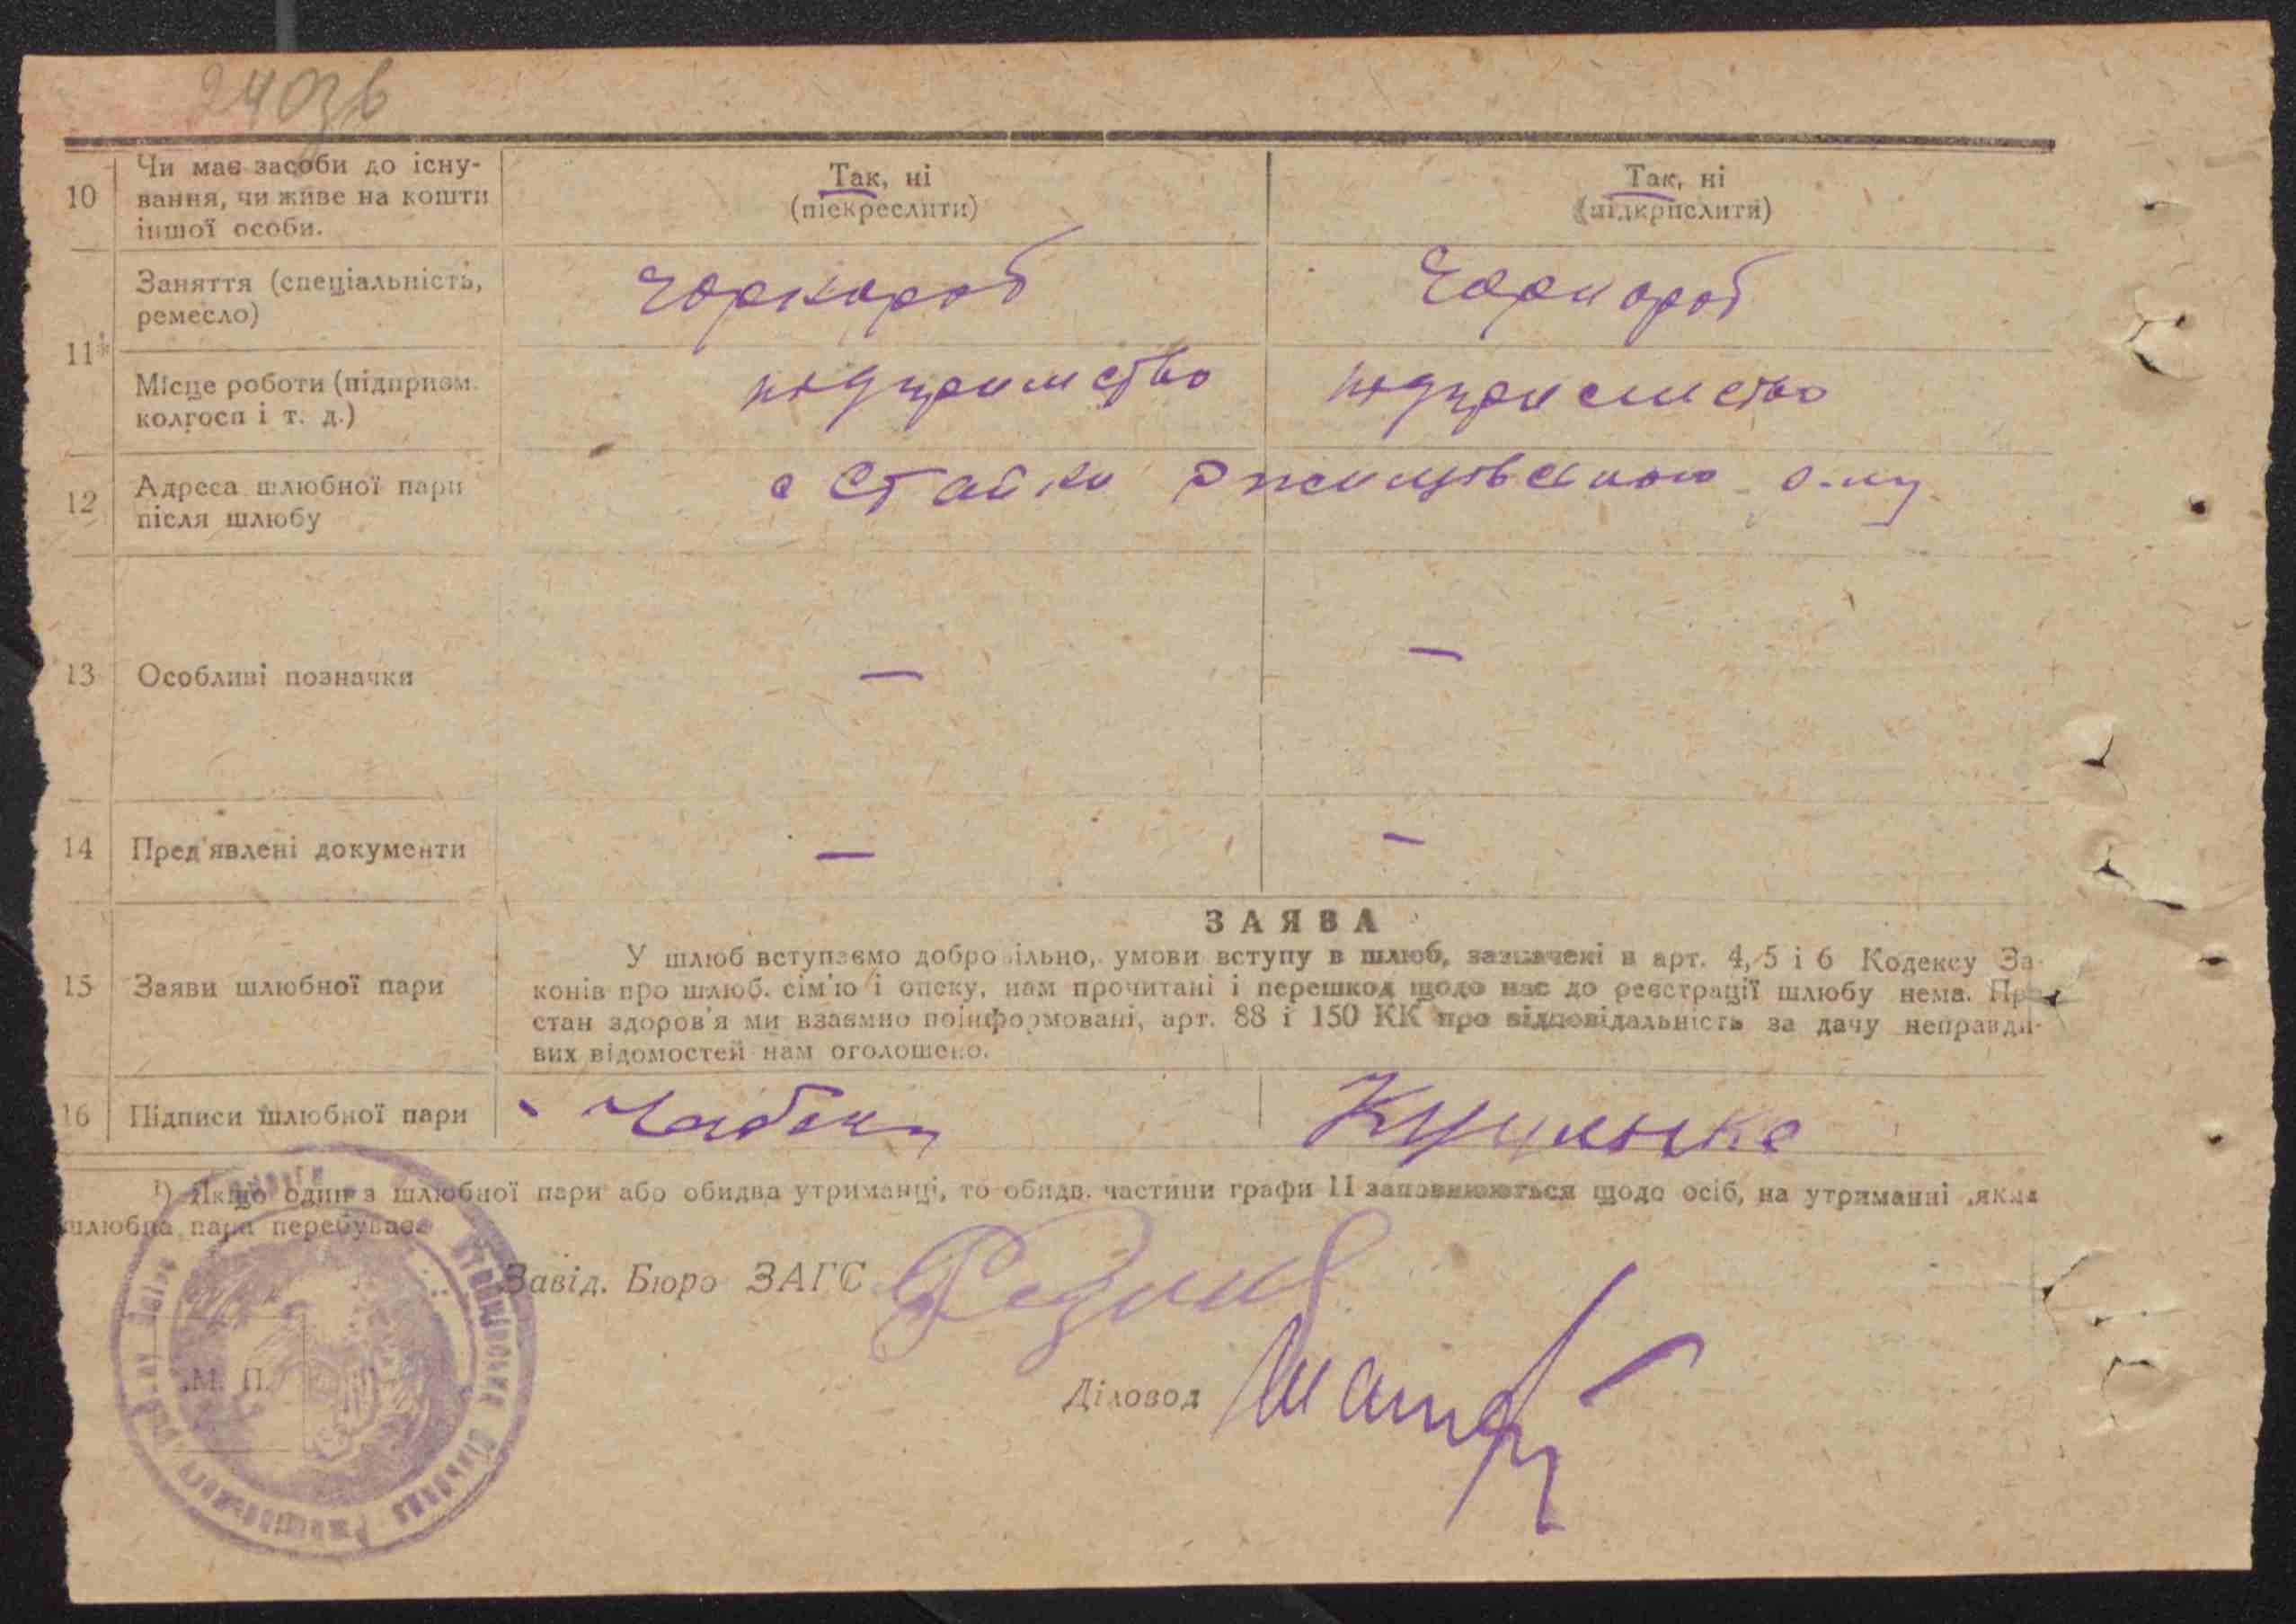 10 Чи має засоби до існу-
вання, чи живе на кошти
іншої особи.
Так, ні
(піскреслити)
Так, ні
(підкрислити)
11 Заняття (спеціальність,
ремесло)
Чорнороб
Чорнороб
Місце роботи (підприєм.
колгосп і т. д.)
підприємство
підприємство
12 Адреса шлюбної пари
після шлюбу
с Стайки Ржищівського р-ну
13 Особливі позначки
—
—
14 Пред'явлені документи
—
—
15 Заяви шлюбної пари
ЗАЯВА
У шлюб вступаємо добровільно, умови вступу в шлюб, зазначені в арт. 4, 5 і 6 Кодексу За-
конів про шлюб. сім'ю і опеку, нам прочитані і перешкод щодо нас до реєстрації шлюбу нема. Про
стан здоров'я ми взаємно поінформовані, арт. 88 і 150 КК про відповідальність за дачу неправди-
вих відомостей нам оголошено.
16 Підписи шлюбної пари
¹) Якщо один з шлюбної пари або обидва утриманці, то обидв. частини графи 11 заповнюються щодо осіб, на утриманні яких
шлюбна пара перебуває.
Завід. Бюро ЗАГС
М. П.
Діловод